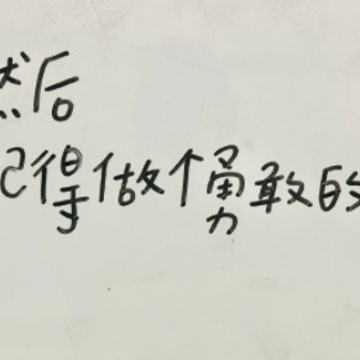 然后
记得做个勇敢的